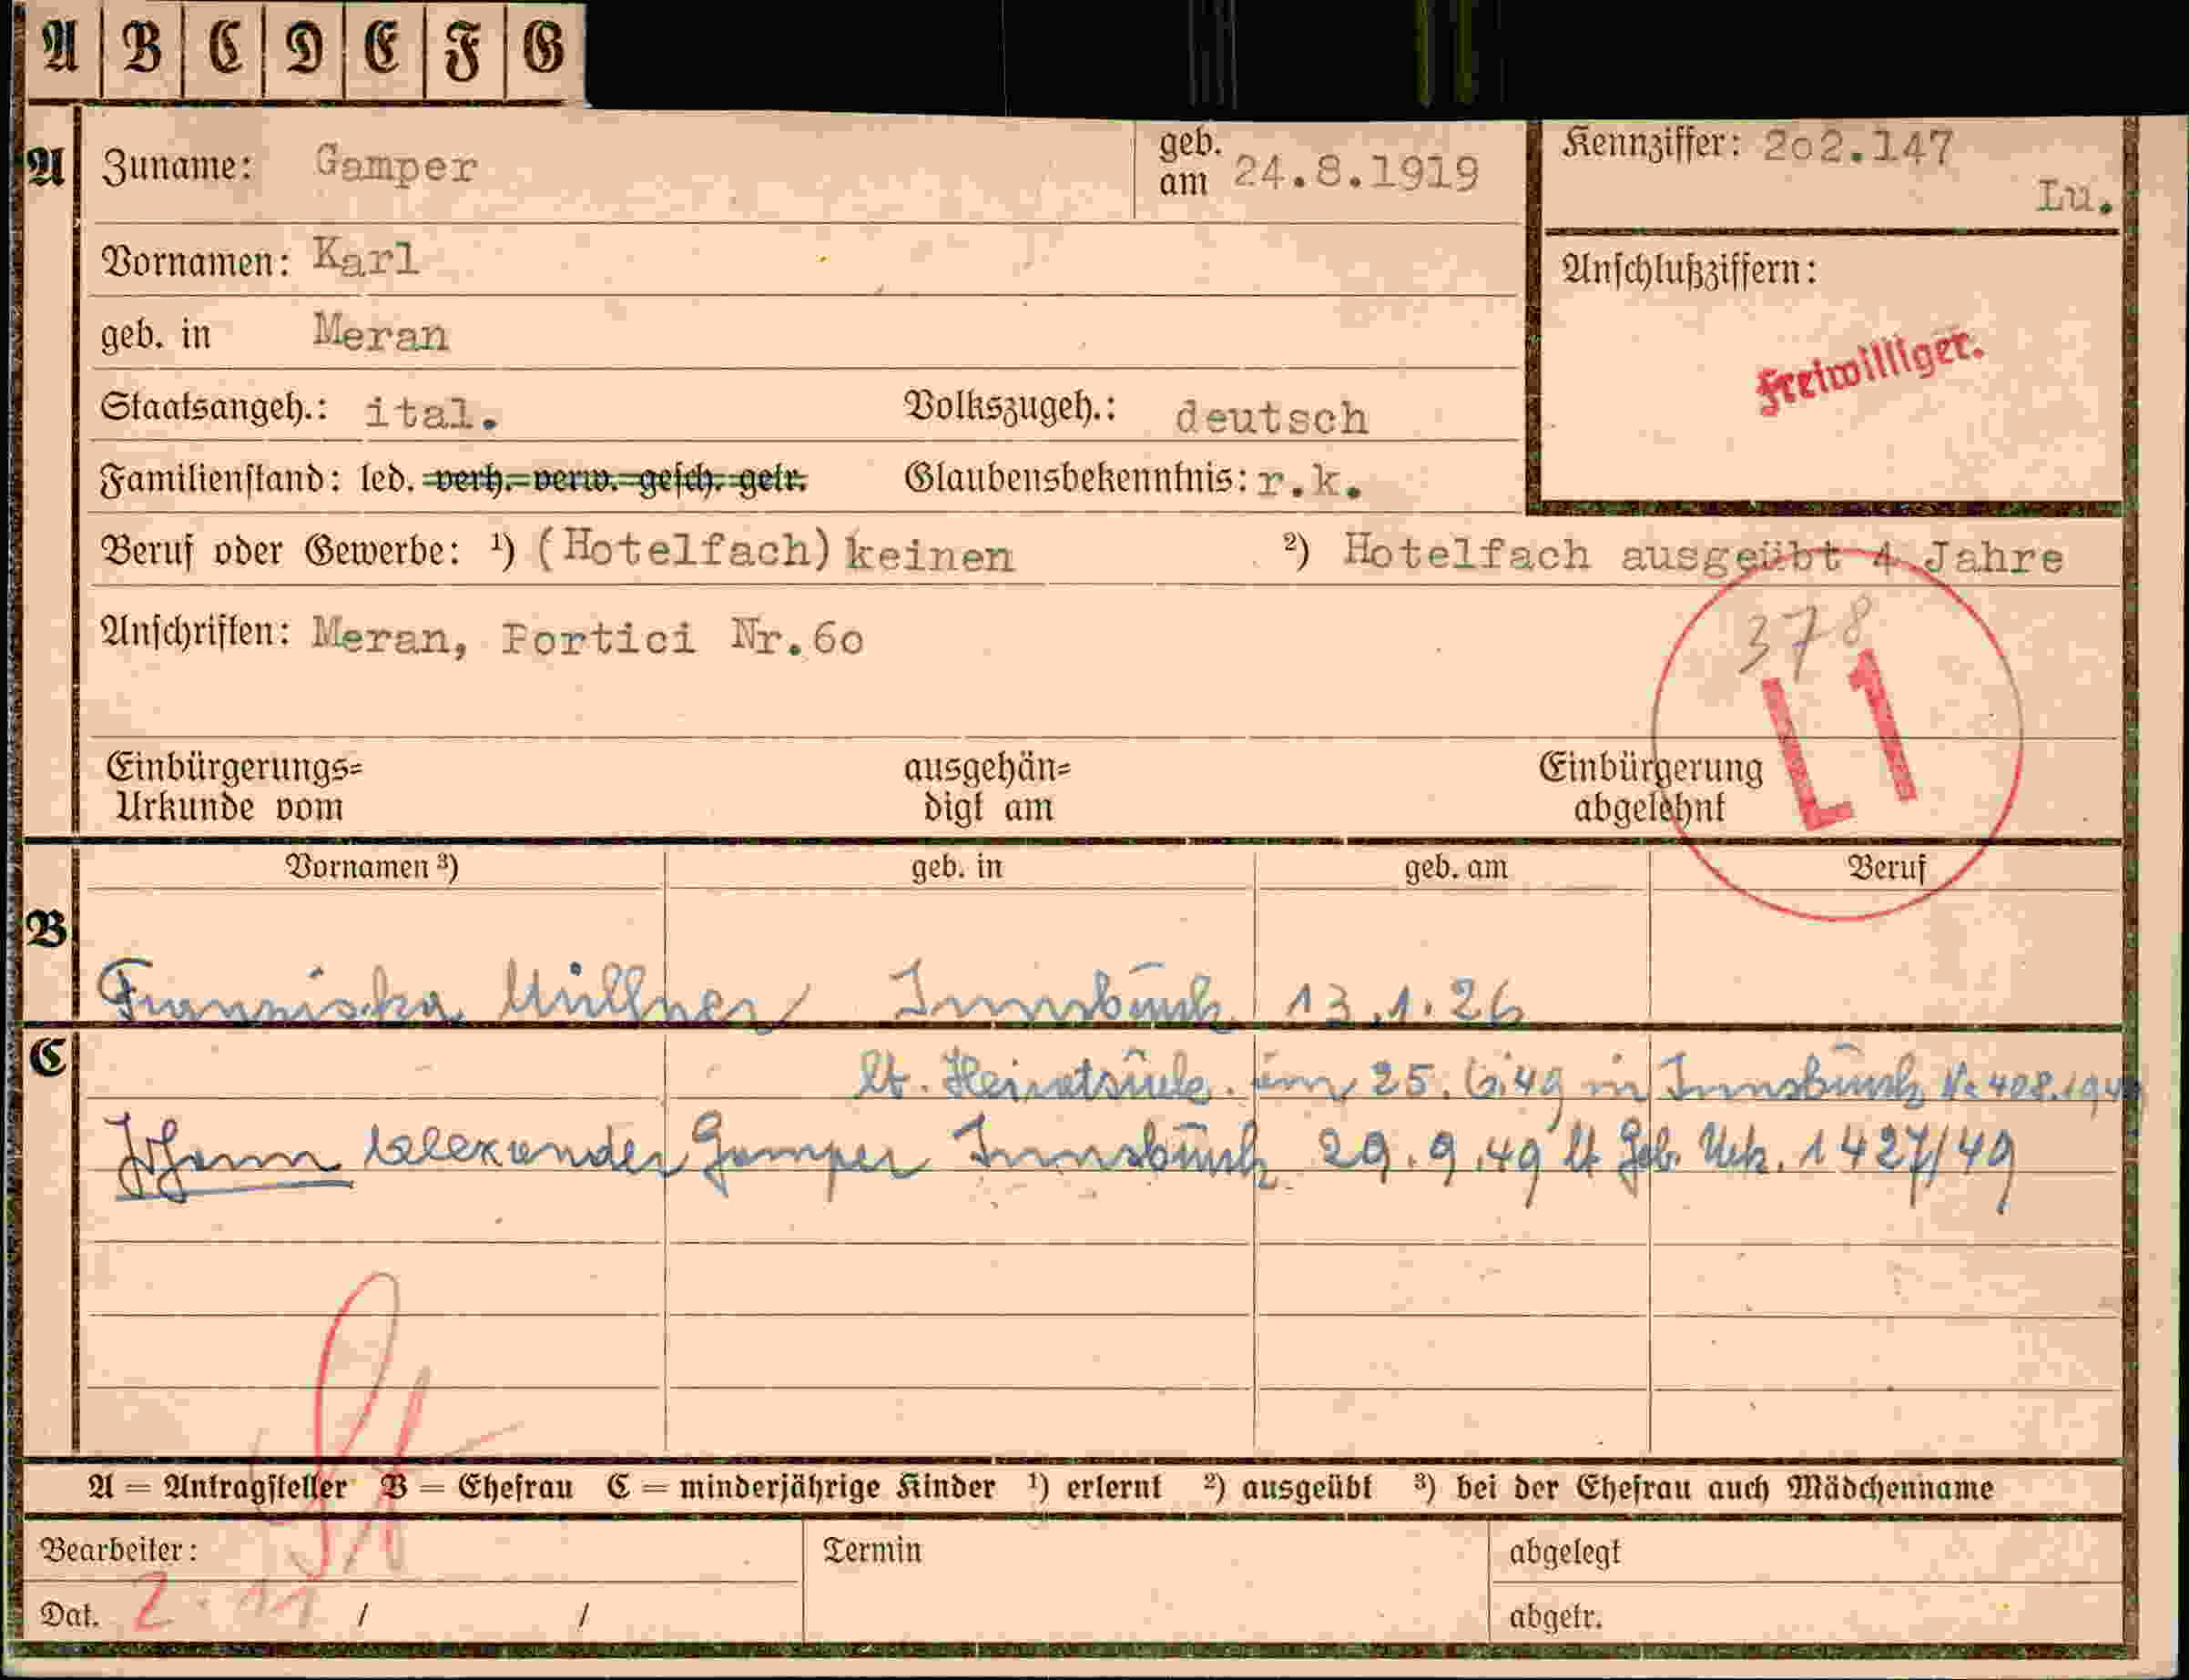 A B C D E F G
A Zuname: Gamper geb. am 24.8.1919 Kennziffer: 202.147
Lu.
Vornamen: Karl Anschlußziffern:
geb. in Meran Freiwilliger.
Staatsangeh.: ital. Volkszugeh.: deutsch
Familienstand: led. verh. verw. gesch. getr. Glaubensbekenntnis: r.k.
Beruf oder Gewerbe: ¹) (Hotelfach) keinen ²) Hotelfach ausgeübt 4 Jahre
378
Anschriften: Meran, Portici Nr.60
L1
Einbürgerungs= ausgehän= Einbürgerung
Urkunde vom digt am abgelehnt
Vornamen ³) geb. in geb. am Beruf
B
Franziska Müllner Innsbruck 13.1.26
C
lt. Heiratsurk. am 25.6.49 in Innsbruck
Johann Alexander Gamper Innsbruck 29.9.49 lt Geb. Urk. 1427/49
A = Antragsteller B = Ehefrau C = minderjährige Kinder ¹) erlernt ²) ausgeübt ³) bei der Ehefrau auch Mädchenname
Bearbeiter: Termin abgelegt
Dat. 2.11 / / abgetr.